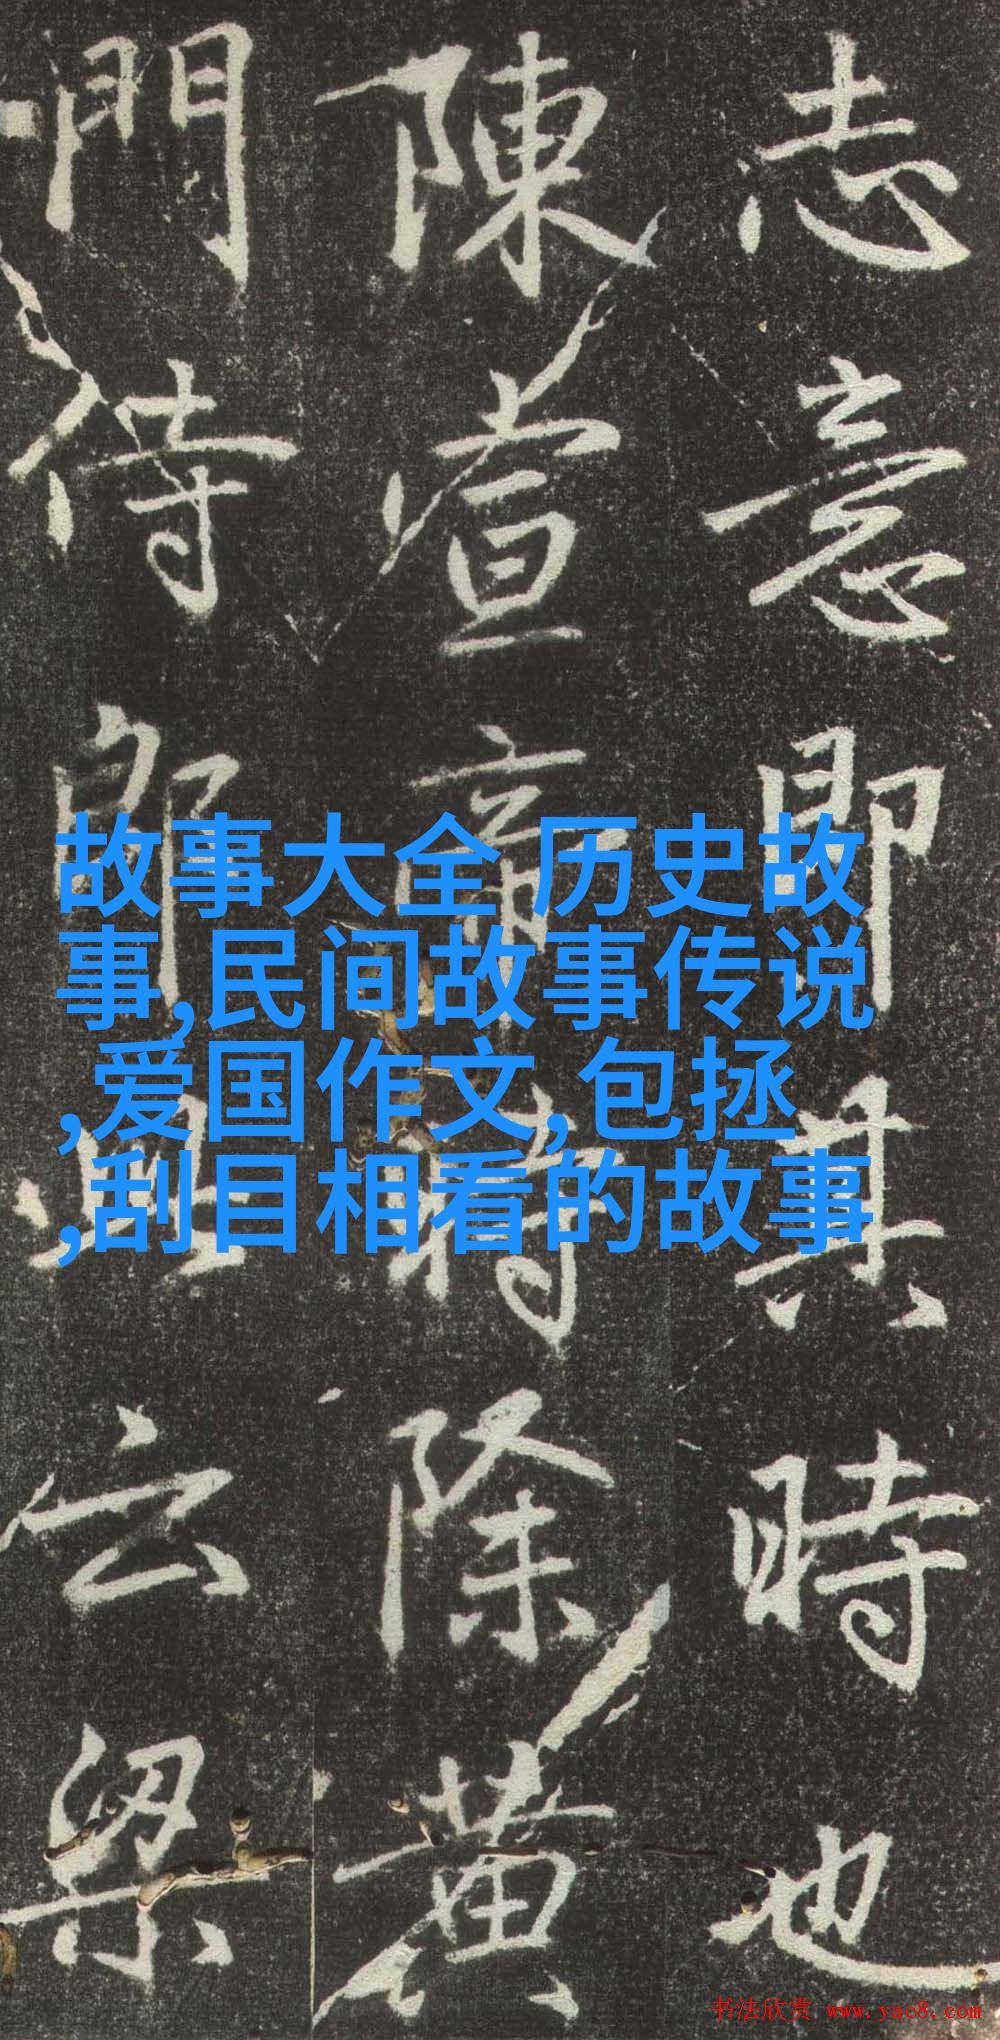 志意即其時也
陳宣帝時除黄
門侍郎云梁
故事大全 历史故
事,民间故事传说
,爱国作文,包拯
,刮目相看的故事
书法欣赏 www.yac8.com